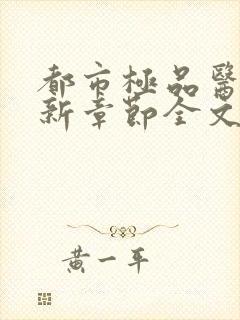 都市極品醫
新章節全文
黃一平